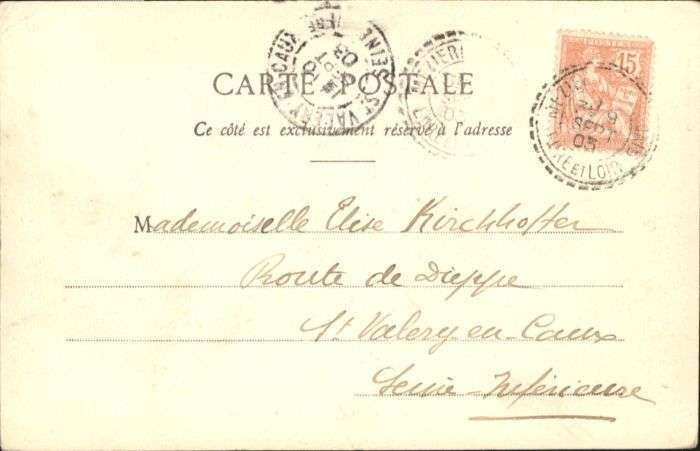 15
CARTE POSTALE
Ce côté est exclusivement réservé à l'adresse
ST VALERY EN CAUX
SEINE INFRE
SEPT
03
SEPT
03
ET LOIR
Mademoiselle Elise Kirchhoffer
Route de Dieppe
St Valery-en-Caux
Seine-Inférieure